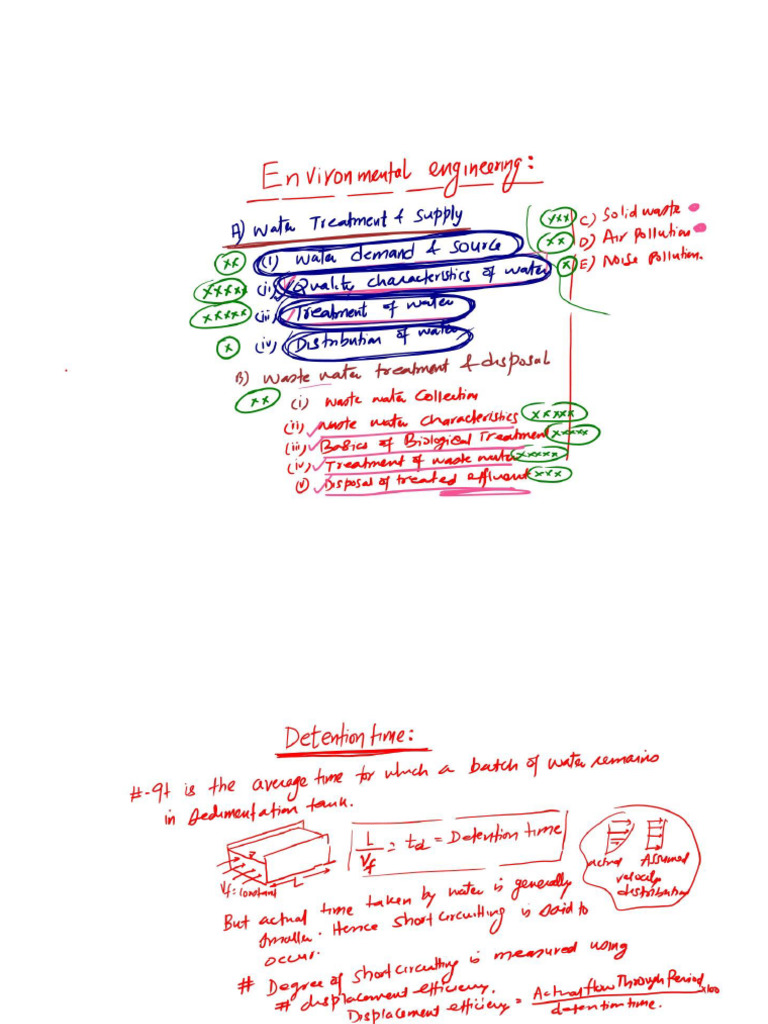 Environmental engineering:
A) Water Treatment & Supply
xx (i) Water demand & Source
xxxxx (ii) Quality characteristics of water
xxxxx (iii) Treatment of water
x (iv) Distribution of water
xxx C) Solid waste
xx D) Air Pollution
x E) Noise Pollution.
B) Waste water treatment & disposal
xx (i) Waste water Collection
(ii) Waste water Characteristics xxxxx
(iii) Basics of Biological Treatment xxxxx
(iv) Treatment of waste water xxxxx
(v) Disposal of treated effluent xxx
Detention time:
#- It is the average time for which a batch of water remains
in Sedimentation tank.
L/Vf = td = Detention time
Vf = constant
L
Actual Assumed
velocity
distribution
But actual time taken by water is generally
smaller. Hence short circuitting is said to
occur.
# Degree of short circuitting is measured using
# displacement efficiency.
Displacement efficiency = Actual flow Through Period / detention time. x100